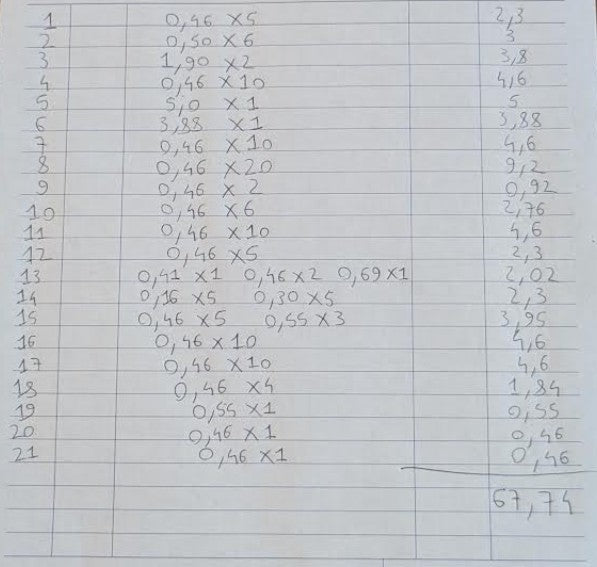 1 0,46 x5 2,3
2 0,50 x 6 3
3 1,90 x2 3,8
4 0,46 x10 4,6
5 5,0 x1 5
6 3,88 x1 3,88
7 0,46 x10 4,6
8 0,46 x20 9,2
9 0,46 x 2 0,92
10 0,46 x6 2,76
11 0,46 x10 4,6
12 0,46 x5 2,3
13 0,41 x1 0,46x2 0,69x1 2,02
14 0,16 x5 0,30x5 2,3
15 0,46 x5 0,55x3 3,95
16 0,46x10 4,6
17 0,46 x10 4,6
18 0,46 x4 1,84
19 0,55 x1 0,55
20 0,46 x1 0,46
21 0,46 x1 0,46
67,74